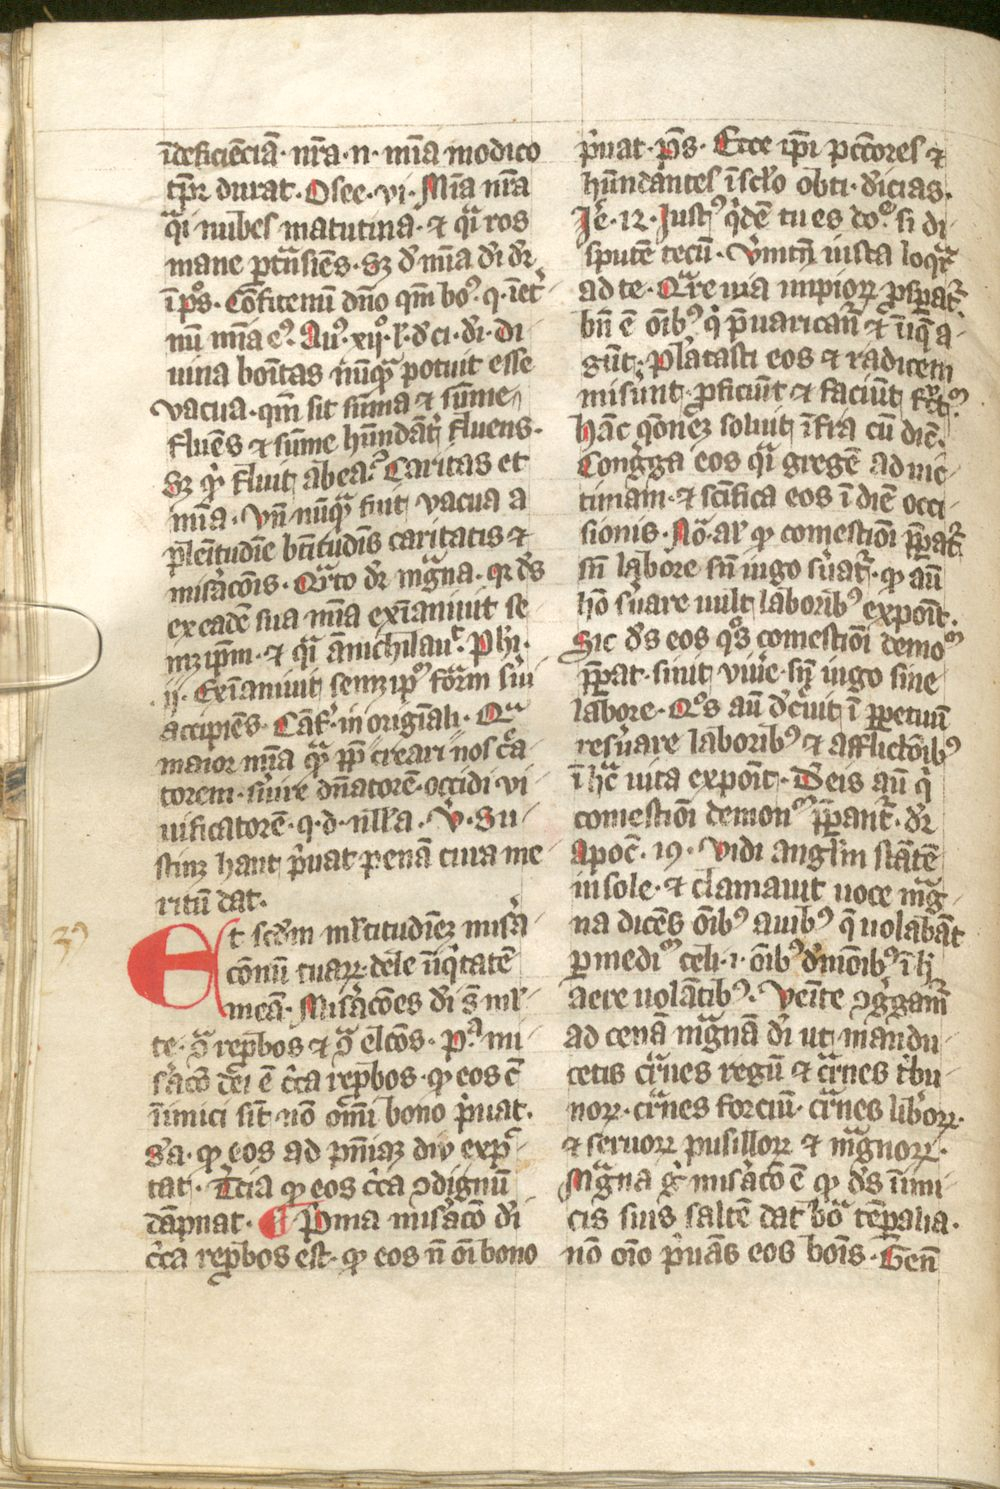 īdeficiēciā · nr̄a · n · mīa modico
tp̄r durat · Osee · vi · Mīa nr̄a
q̄i nubes matutina · et q̄i ros
mane p̄trāsiēs · Sꝫ d' mīa dī dr̄
ī ps̄ · Confitemī dn̄o qm̄ boꝰ · q · ī et'
nū mīa eꝰ · Auꝰ · xijº · l · d' ci · dī · Di
uina bonītas nūq̄ potuit esse
vacua · qm̄ sit sūma et sūme
fluēs et sūme hūndāt' fluens ·
Sꝫ qꝫ fluit ab ea · Caritas et
mīa · Vn̄ nūq̄ fuit vacua a
plenitudīe btītudīs caritatis et
misācōnis · Qrto dr̄ magna · qr ds̄
ex eadē sua mīa exīaniuit se
mꝫ ip̄m · et q̄i āīchilauᵗ · Phi ·
ij · Exīaniuit semꝫ ipᵐ formā sui
accipiēs · Caſ' · in origīali · Qa
maior mīa q̄ pp̄ creari nos crea
torem · suire dn̄atorē · occidi vi
uificatorē · q · d · nlla · V · Su
stinꝫ haut p̄uat penā cura me
ritū dat ·
39
Et scd̄m mltitudīeꝫ misa
cōnū tuaꝝ · dele īiq̄tatē
meā · Misacōes dī st̄ ml
te · 9ᵃ rep̄bos et 9ᵃ elcōs · Pᵃ mi
sacō dei ē c̄ca rep̄bos · qꝫ eos cᵉ
īimici sīt · nō om̄i bono p̄uat ·
Sᵃ · qꝫ eos ad pn̄iaꝫ diu exp̄c
tat · Tᵉcia qꝫ eos c̄ca ↄdignū
dāpnat · Pīma misacō dī
c̄ca rep̄bos est · qꝫ eos n̄ oī bono
p̄uat · ps̄ · Ecce ip̄i pctōres et
hūndantes ī sclo obti · diicias ·
Je · 12 · Justꝰ q̄dē tu es doᵉ si di
sputē tecū · Vmtn̄ iusta loq̄r
ad te · Qre uia impioꝝ p̄spat'
bn̄ ē oībꝰ q̄ p̄uaricanᵗ et īiq̄ a
gūt · Plātasti eos et radicem
misunt · p̄ficiūt et faciūt frᶜtᵐ
hanc q̄oneꝫ soluit īfra cū dic̄ ·
Conḡga eos q̄i gregē ad vic
timam · et scīfica eos ī diē occi
sionis · Nō · al' qꝫ comestiōi p̄pat'
sn̄ labore sn̄ iugo suāt' · qꝫ aū
hō suare uult laboribꝰ exponīt ·
Sic ds̄ eos qᵒs comestiōi demoᵐ
p̄pat · sinit viue sn̄ iugo sine
labore · Qᵒs aū dcuit ī p̄petuū
resuare laboribꝰ et afflictōibꝰ
ī hᵃc uita exponīt · De is aū q̄
comestiōi demonᵐ p̄pant' · dr̄
Apoc · 19 · Vidi anglm stātē
in sole · et clamauit uoce mag
na dicēs oībꝰ auibꝰ q̄ uolabāt
p medīᵐ celi · i · oībꝰ dmōibꝰ ī hᶜ
aere uolātibꝰ · Venīte ↄḡgaī
ad cenā magnā dī ut mandu
cetis carnes regū et carnes tibu
noꝝ · carnes forciū · carnes liboꝝ ·
et seruoꝝ pusilloꝝ et magnoꝝ ·
Magna g misacō ē qꝫ ds̄ īimi
cis suis saltē dat boᵃ tēpalia ·
nō oīo p̄uās eos bonīs · Gen̄